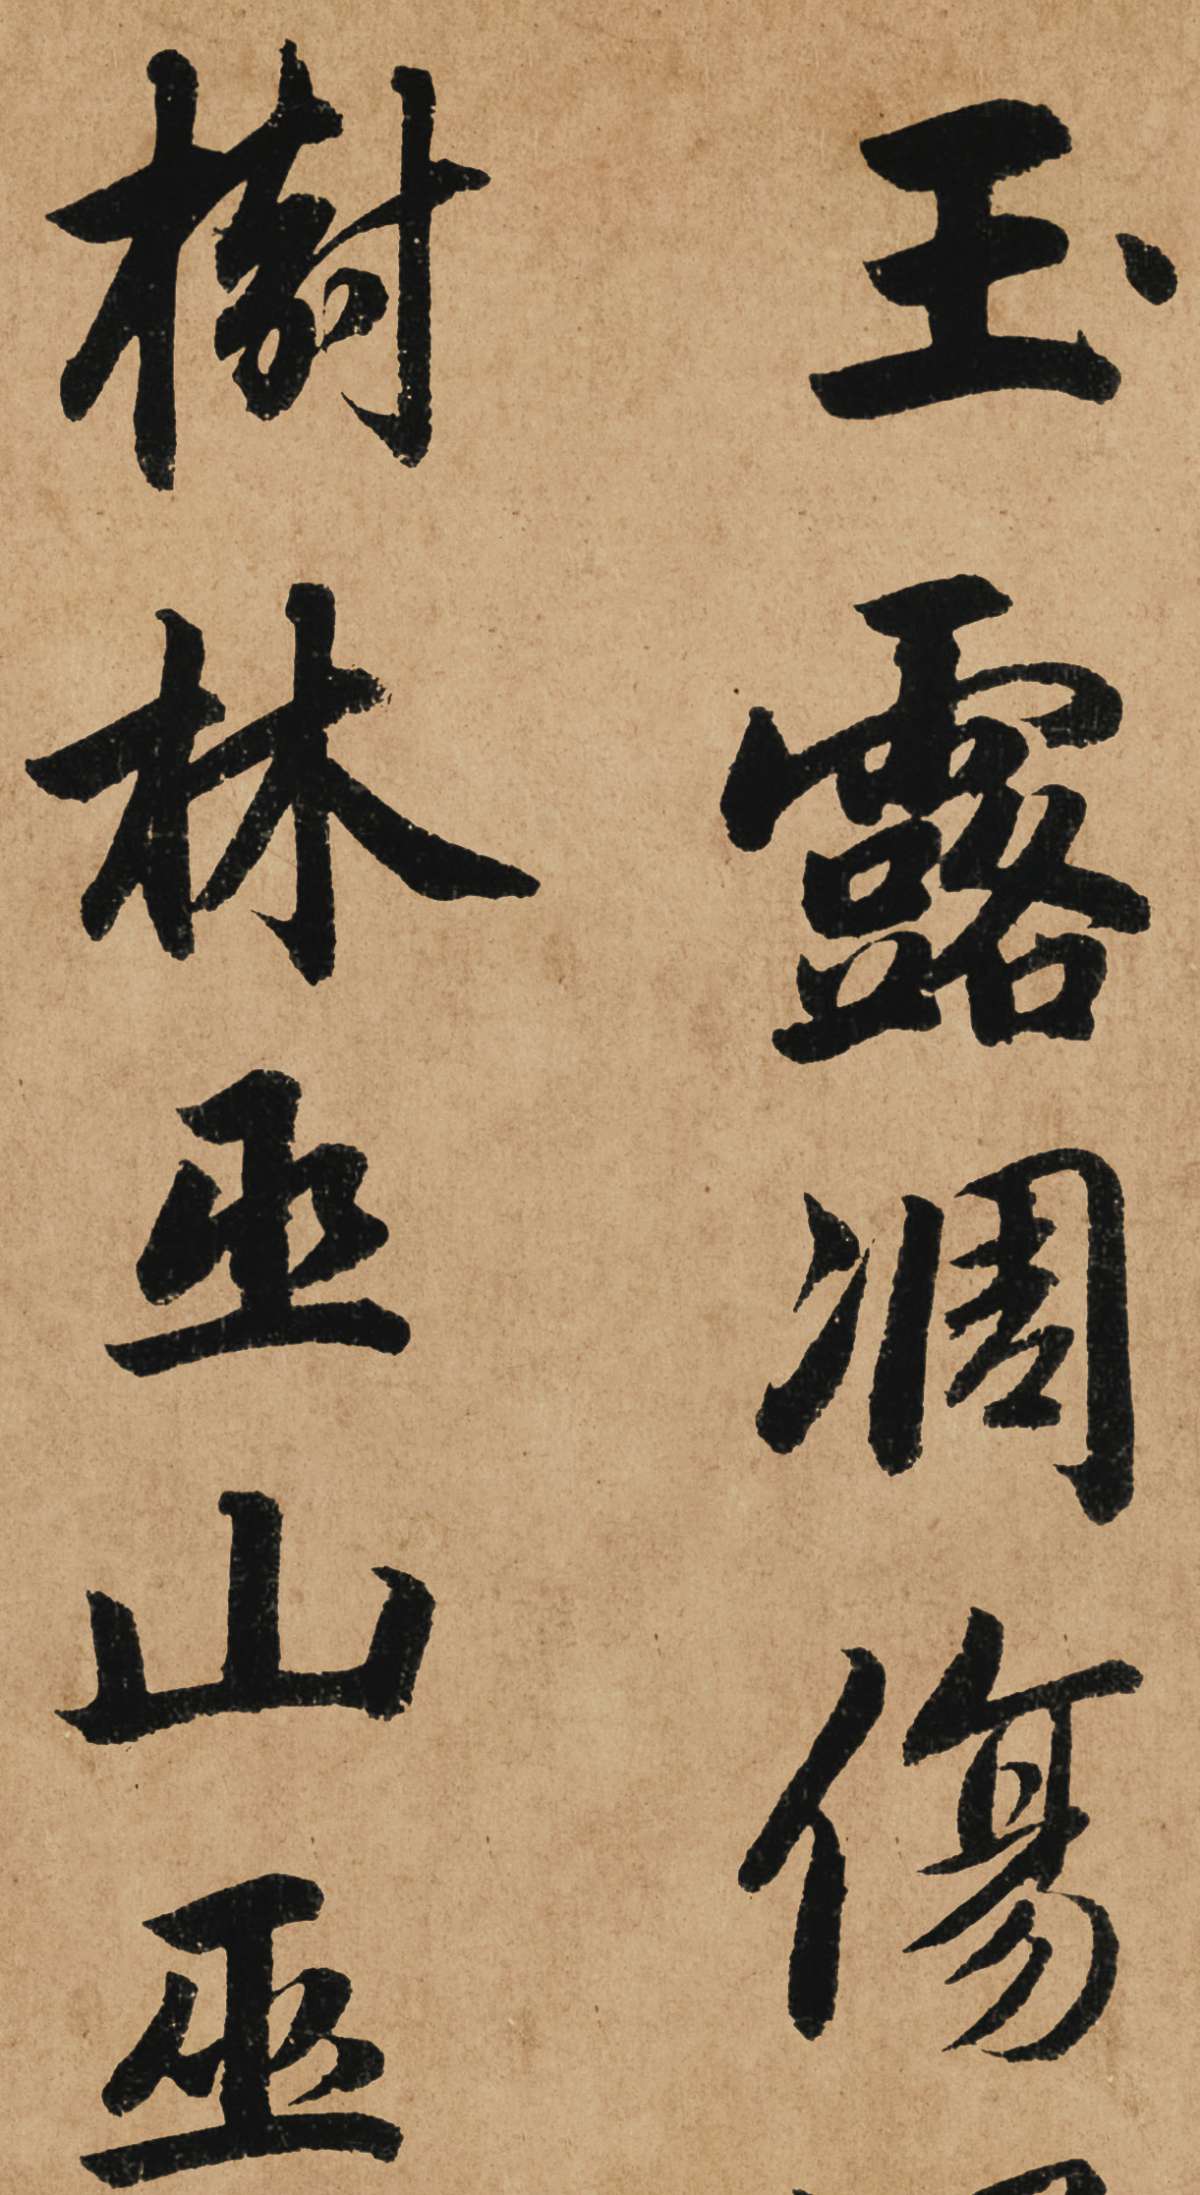 玉露凋傷
樹林巫山巫